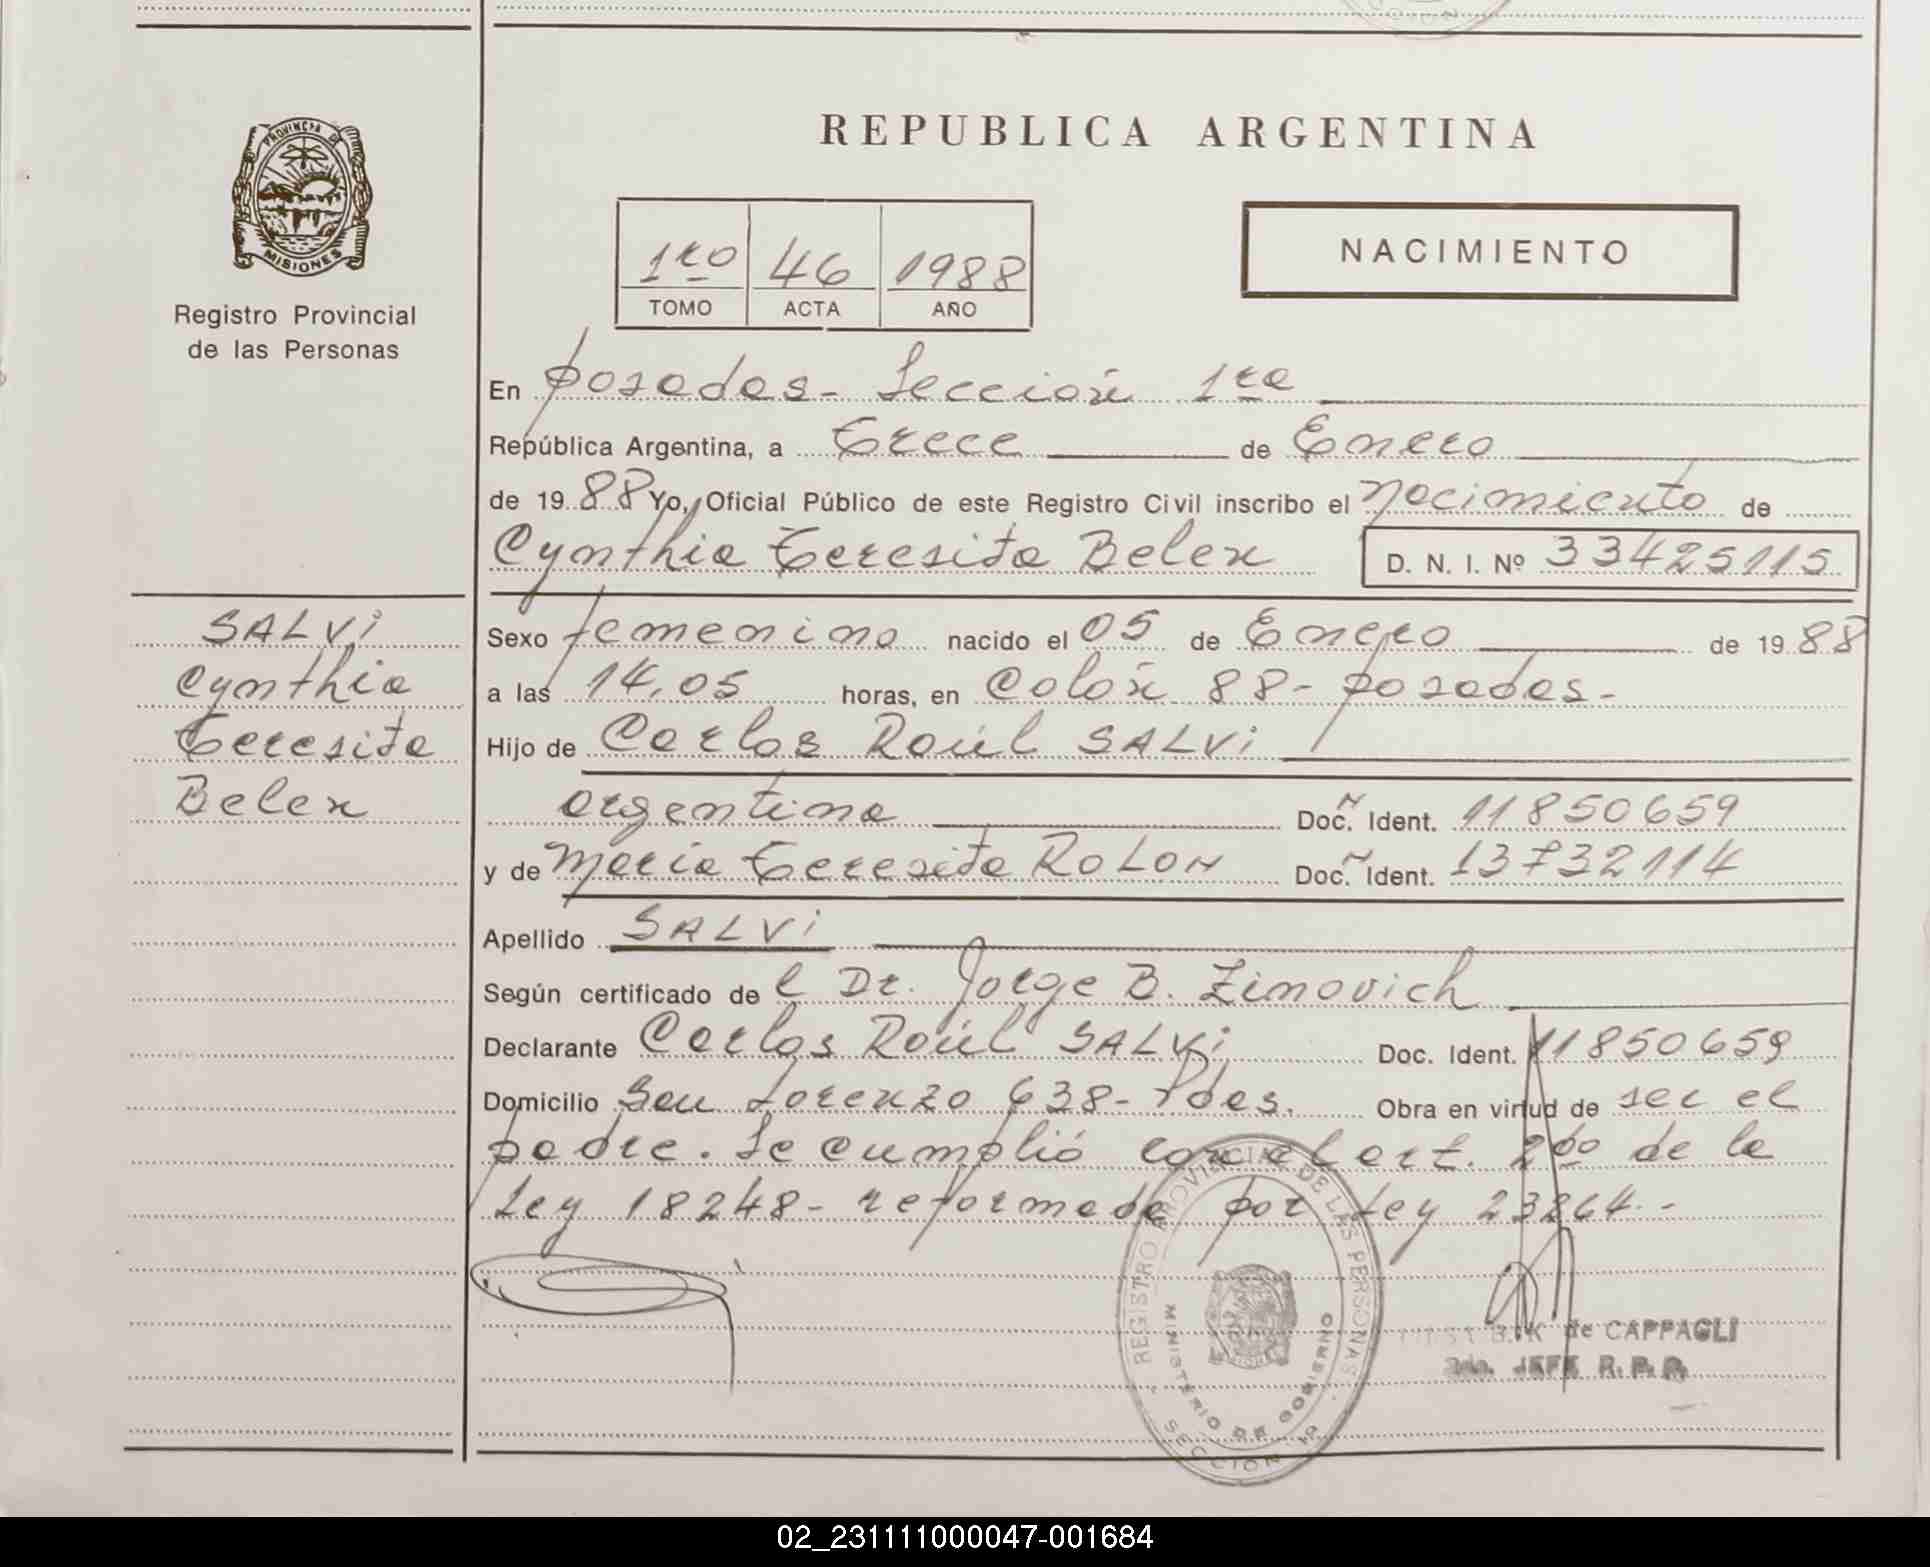 PROVINCIA DE
MISIONES
Registro Provincial
de las Personas
REPUBLICA ARGENTINA
1ro 46 1988
TOMO ACTA AÑO
NACIMIENTO
En Posadas - Sección 1ra
República Argentina, a Trece de Enero
de 19 88 Yo, Oficial Público de este Registro Civil inscribo el Nacimiento de
Cynthia Teresita Belen D. N. I. Nº 33425115
SALVi
Cynthia
Teresita
Belen
Sexo femenino nacido el 05 de Enero de 19 88
a las 14,05 horas, en Colón 88 - Posadas -
Hijo de Carlos Raúl SALVi
argentino Doc. Ident. 11850659
y de María Teresita ROLON Doc. Ident. 13732114
Apellido SALVi
Según certificado de l Dr. Jorge B. Zinovich
Declarante Carlos Raúl SALVi Doc. Ident. 11850659
Domicilio San Lorenzo 638 - Pdas. Obra en virtud de ser el
padre. Se cumplió con el art. 2do de la
Ley 18248 - reformada por Ley 23264 - -
REGISTRO PROVINCIAL DE LAS PERSONAS
MINISTERIO DE GOBIERNO
SECCION 1ª
de CAPPAGLI
JEFE R. P. P.
02_231111000047-001684